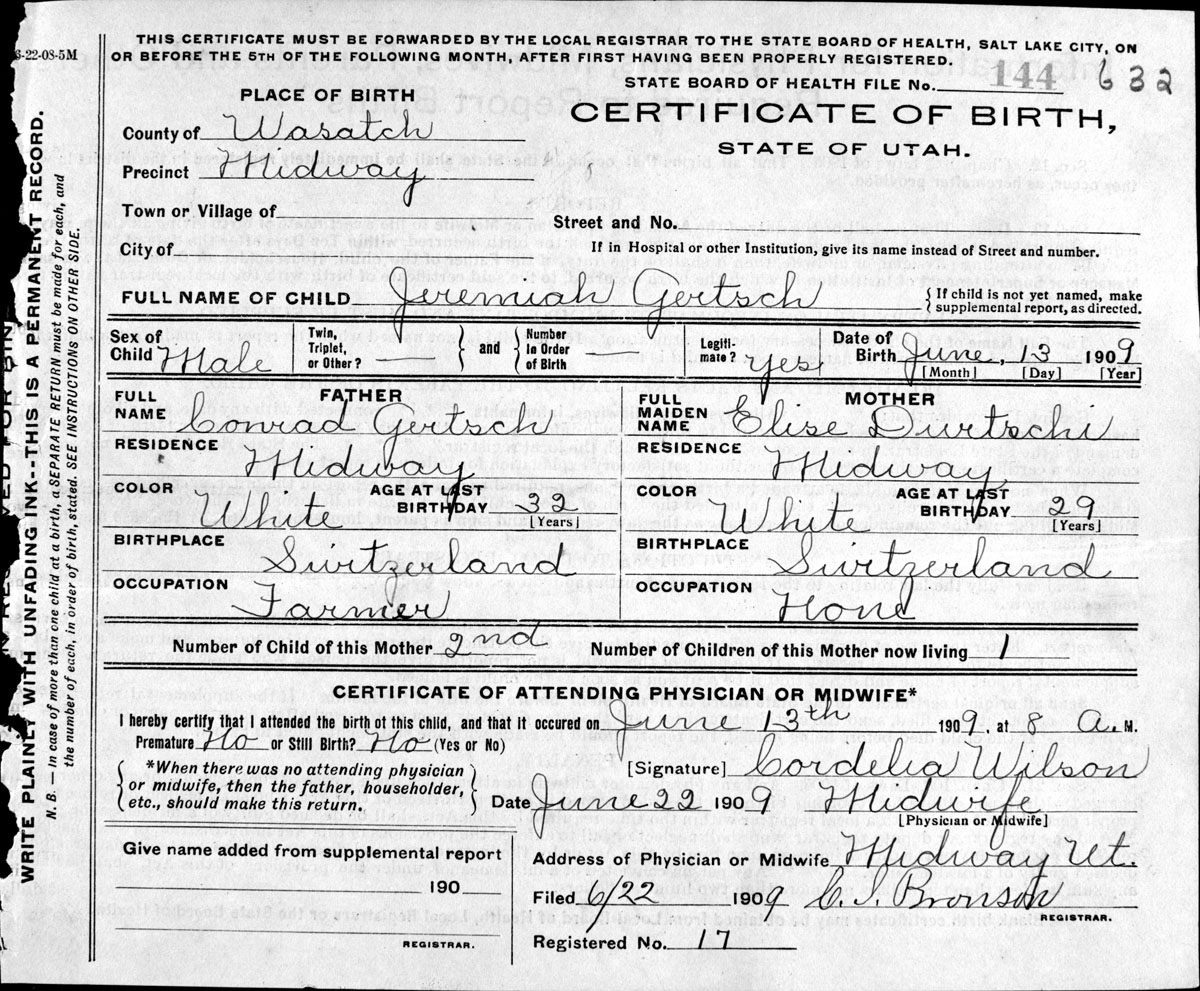 3-22-08-5M
THIS CERTIFICATE MUST BE FORWARDED BY THE LOCAL REGISTRAR TO THE STATE BOARD OF HEALTH, SALT LAKE CITY, ON
OR BEFORE THE 5TH OF THE FOLLOWING MONTH, AFTER FIRST HAVING BEEN PROPERLY REGISTERED.
STATE BOARD OF HEALTH FILE No. 144 632
PLACE OF BIRTH
CERTIFICATE OF BIRTH,
STATE OF UTAH.
County of Wasatch
Precinct Midway
Town or Village of
Street and No.
City of
If in Hospital or other Institution, give its name instead of Street and number.
FULL NAME OF CHILD Jeremiah Gertsch
{ If child is not yet named, make
supplemental report, as directed.
Sex of Child Male
Twin, Triplet, or Other? } and { Number in Order of Birth
Legiti-mate? yes
Date of Birth June, 13 1909
[Month] [Day] [Year]
FATHER
FULL NAME Conrad Gertsch
RESIDENCE Midway
COLOR White AGE AT LAST BIRTHDAY 32 [Years]
BIRTHPLACE Switzerland
OCCUPATION Farmer
MOTHER
FULL MAIDEN NAME Elise Durtschi
RESIDENCE Midway
COLOR White AGE AT LAST BIRTHDAY 29 [Years]
BIRTHPLACE Switzerland
OCCUPATION None
Number of Child of this Mother 2nd Number of Children of this Mother now living 1
CERTIFICATE OF ATTENDING PHYSICIAN OR MIDWIFE*
I hereby certify that I attended the birth of this child, and that it occured on June 13th 1909, at 8 A. M.
Premature No or Still Birth? No (Yes or No)
{ *When there was no attending physician
or midwife, then the father, householder,
etc., should make this return. }
[Signature] Cordelia Wilson
Date June 22 1909 Midwife
[Physician or Midwife]
Give name added from supplemental report
190
REGISTRAR.
Address of Physician or Midwife Midway Ut.
Filed 6/22 1909 C. I. Bronson
REGISTRAR.
Registered No. 17
WRITE PLAINLY WITH UNFADING INK--THIS IS A PERMANENT RECORD.
N. B. In case of more than one child at a birth, a SEPARATE RETURN must be made for each, and
the number of each, in order of birth, stated. SEE INSTRUCTIONS ON OTHER SIDE.